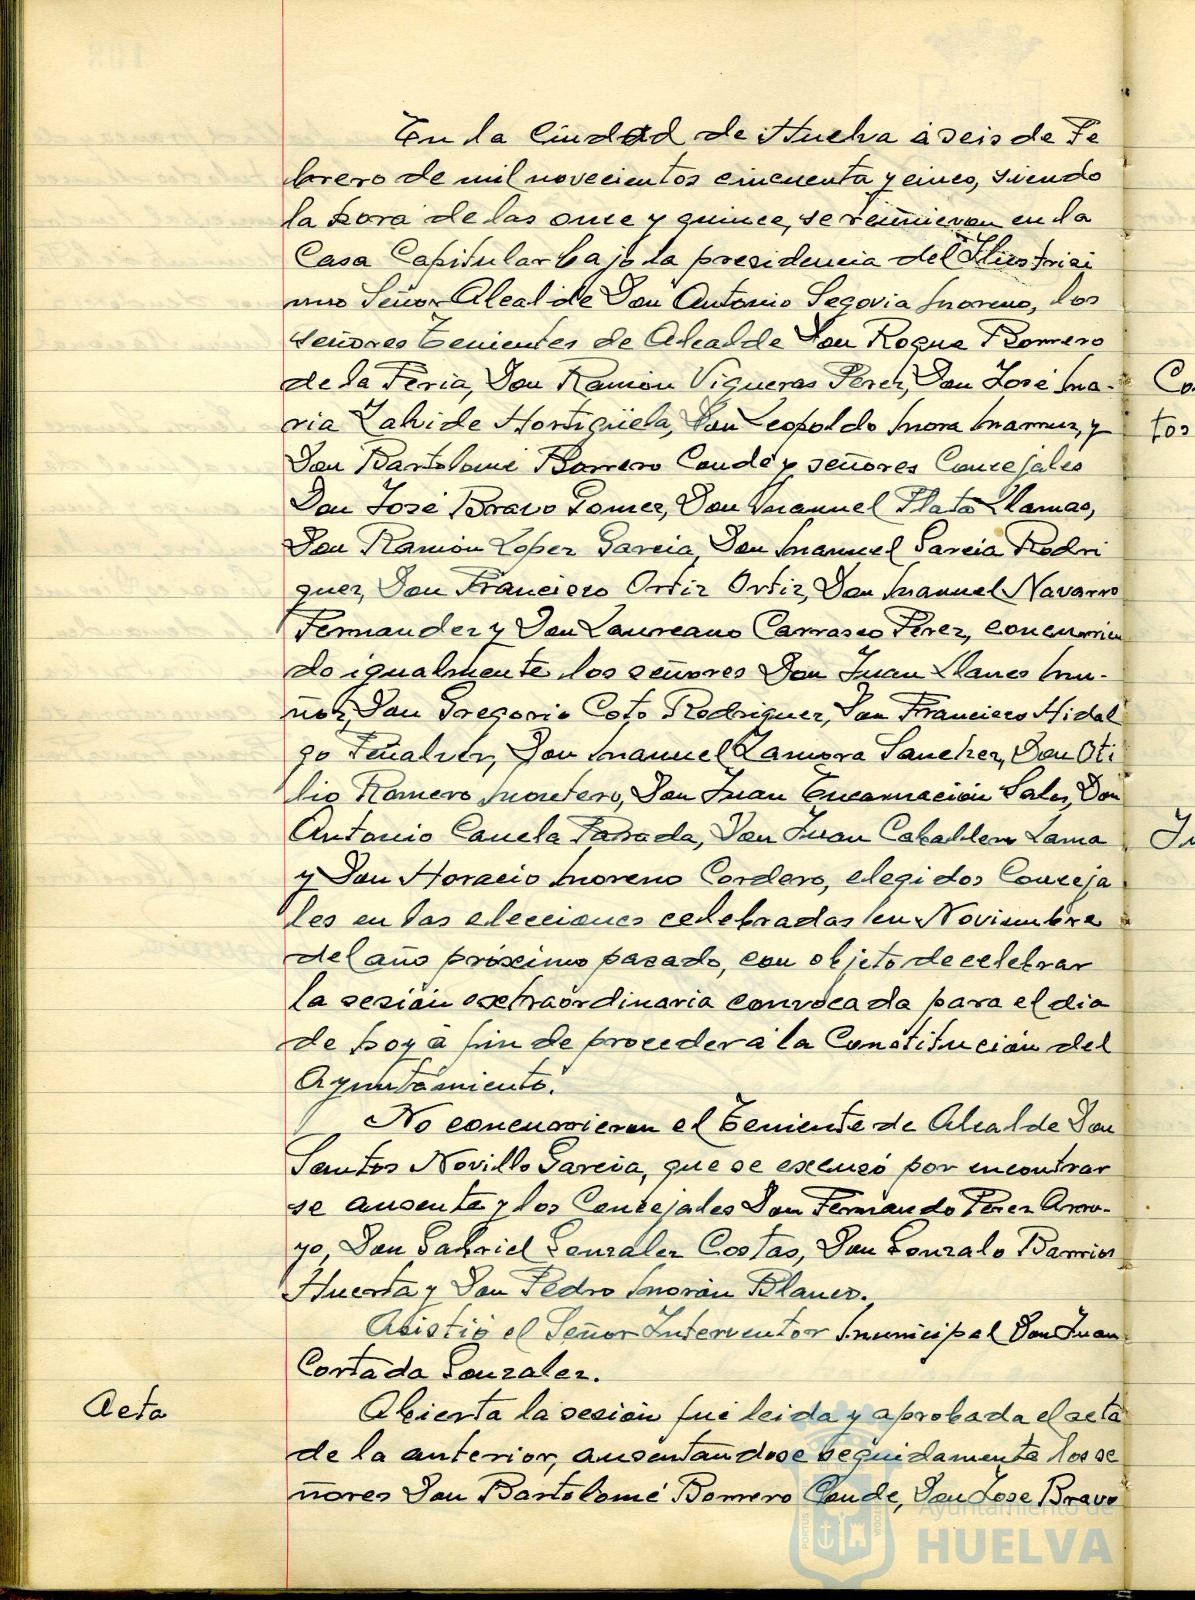 En la Ciudad de Huelva á seis de Fe
brero de mil novecientos cincuenta y cinco, siendo
la hora de las once y quince, se reunieron en la
Casa Capitular bajo la presidencia del Ilustrisi
mo Señor Alcalde Don Antonio Segovia Moreno, los
señores Tenientes de Alcalde Don Roque Romero
de la Feria, Don Ramón Vigueras Perez, Don José Ma-
ria Zahide Hortigüela, Don Leopoldo Mora Mamuz, y
Don Bartolomé Borrero Conde y señores Concejales
Don José Bravo Gomez, Don Manuel Plata Llamas,
Don Ramón Lopez Garcia, Don Manuel Garcia Rodri
guez, Don Francisco Ortiz Ortiz, Don Manuel Navarro
Fernandez y Don Laureano Carrasco Perez, concurrien
do igualmente los señores Don Juan Llanes Mu-
ñoz, Don Gregorio Coto Rodriguez, Don Francisco Hidal
go Peñalver, Don Manuel Zamora Sanchez, Don Oti
lio Romero Montero, Don Juan Encarnación Sales, Don
Antonio Canela Parada, Don Juan Caballero Lama
y Don Horacio Moreno Cordero, elegidos Conceja
les en las elecciones celebradas en Noviembre
del año próximo pasado, con objeto de celebrar
la sesión extraordinaria convocada para el dia
de hoy á fin de proceder á la Constitución del
Ayuntamiento.
No concurrieron el Teniente de Alcalde Don
Santos Novillo Garcia, que se excusó por encontrar
se ausente y los Concejales Don Fernando Perez Arro-
yo, Don Gabriel Gonzalez Costas, Don Gonzalo Barrios
Huerta y Don Pedro Morón Blanco.
Asistió el Señor Interventor Municipal Don Juan
Cortada Gonzalez.
Acta
Abierta la sesión fué leida y aprobada el acta
de la anterior, ausentandose seguidamente los se
ñores Don Bartolomé Borrero Conde, Don Jose Bravo
Co
tos
Ayuntamiento de
HUELVA